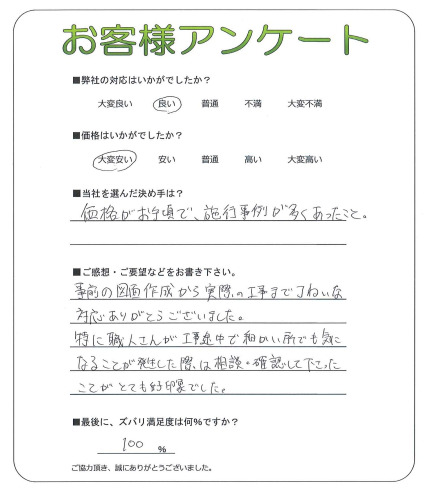 お客様アンケート
■弊社の対応はいかがでしたか？
大変良い 良い 普通 不満 大変不満
■価格はいかがでしたか？
大変安い 安い 普通 高い 大変高い
■当社を選んだ決め手は？
価格がお手頃で、施行事例が多くあったこと。
■ご感想・ご要望などをお書き下さい。
事前の図面作成から実際の工事までていねいな
対応ありがとうございました。
特に職人さんが工事途中で細かい所でも気に
なることが発生した際は相談・確認して下さった
ことがとても好印象でした。
■最後に、ズバリ満足度は何％ですか？
100 ％
ご協力頂き、誠にありがとうございました。